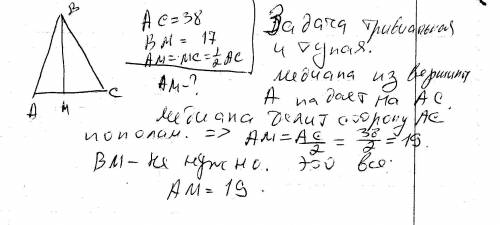 B
A
M
C
AC = 38
BM = 17
AM = MC = 1/2 AC
AM - ?
Задача тривиальная
и тупая.
медиана из вершины
A падает на AC.
медиана делит сторону AC
пополам. => AM = AC/2 = 38/2 = 19.
BM - не нужно. Это все.
AM = 19.